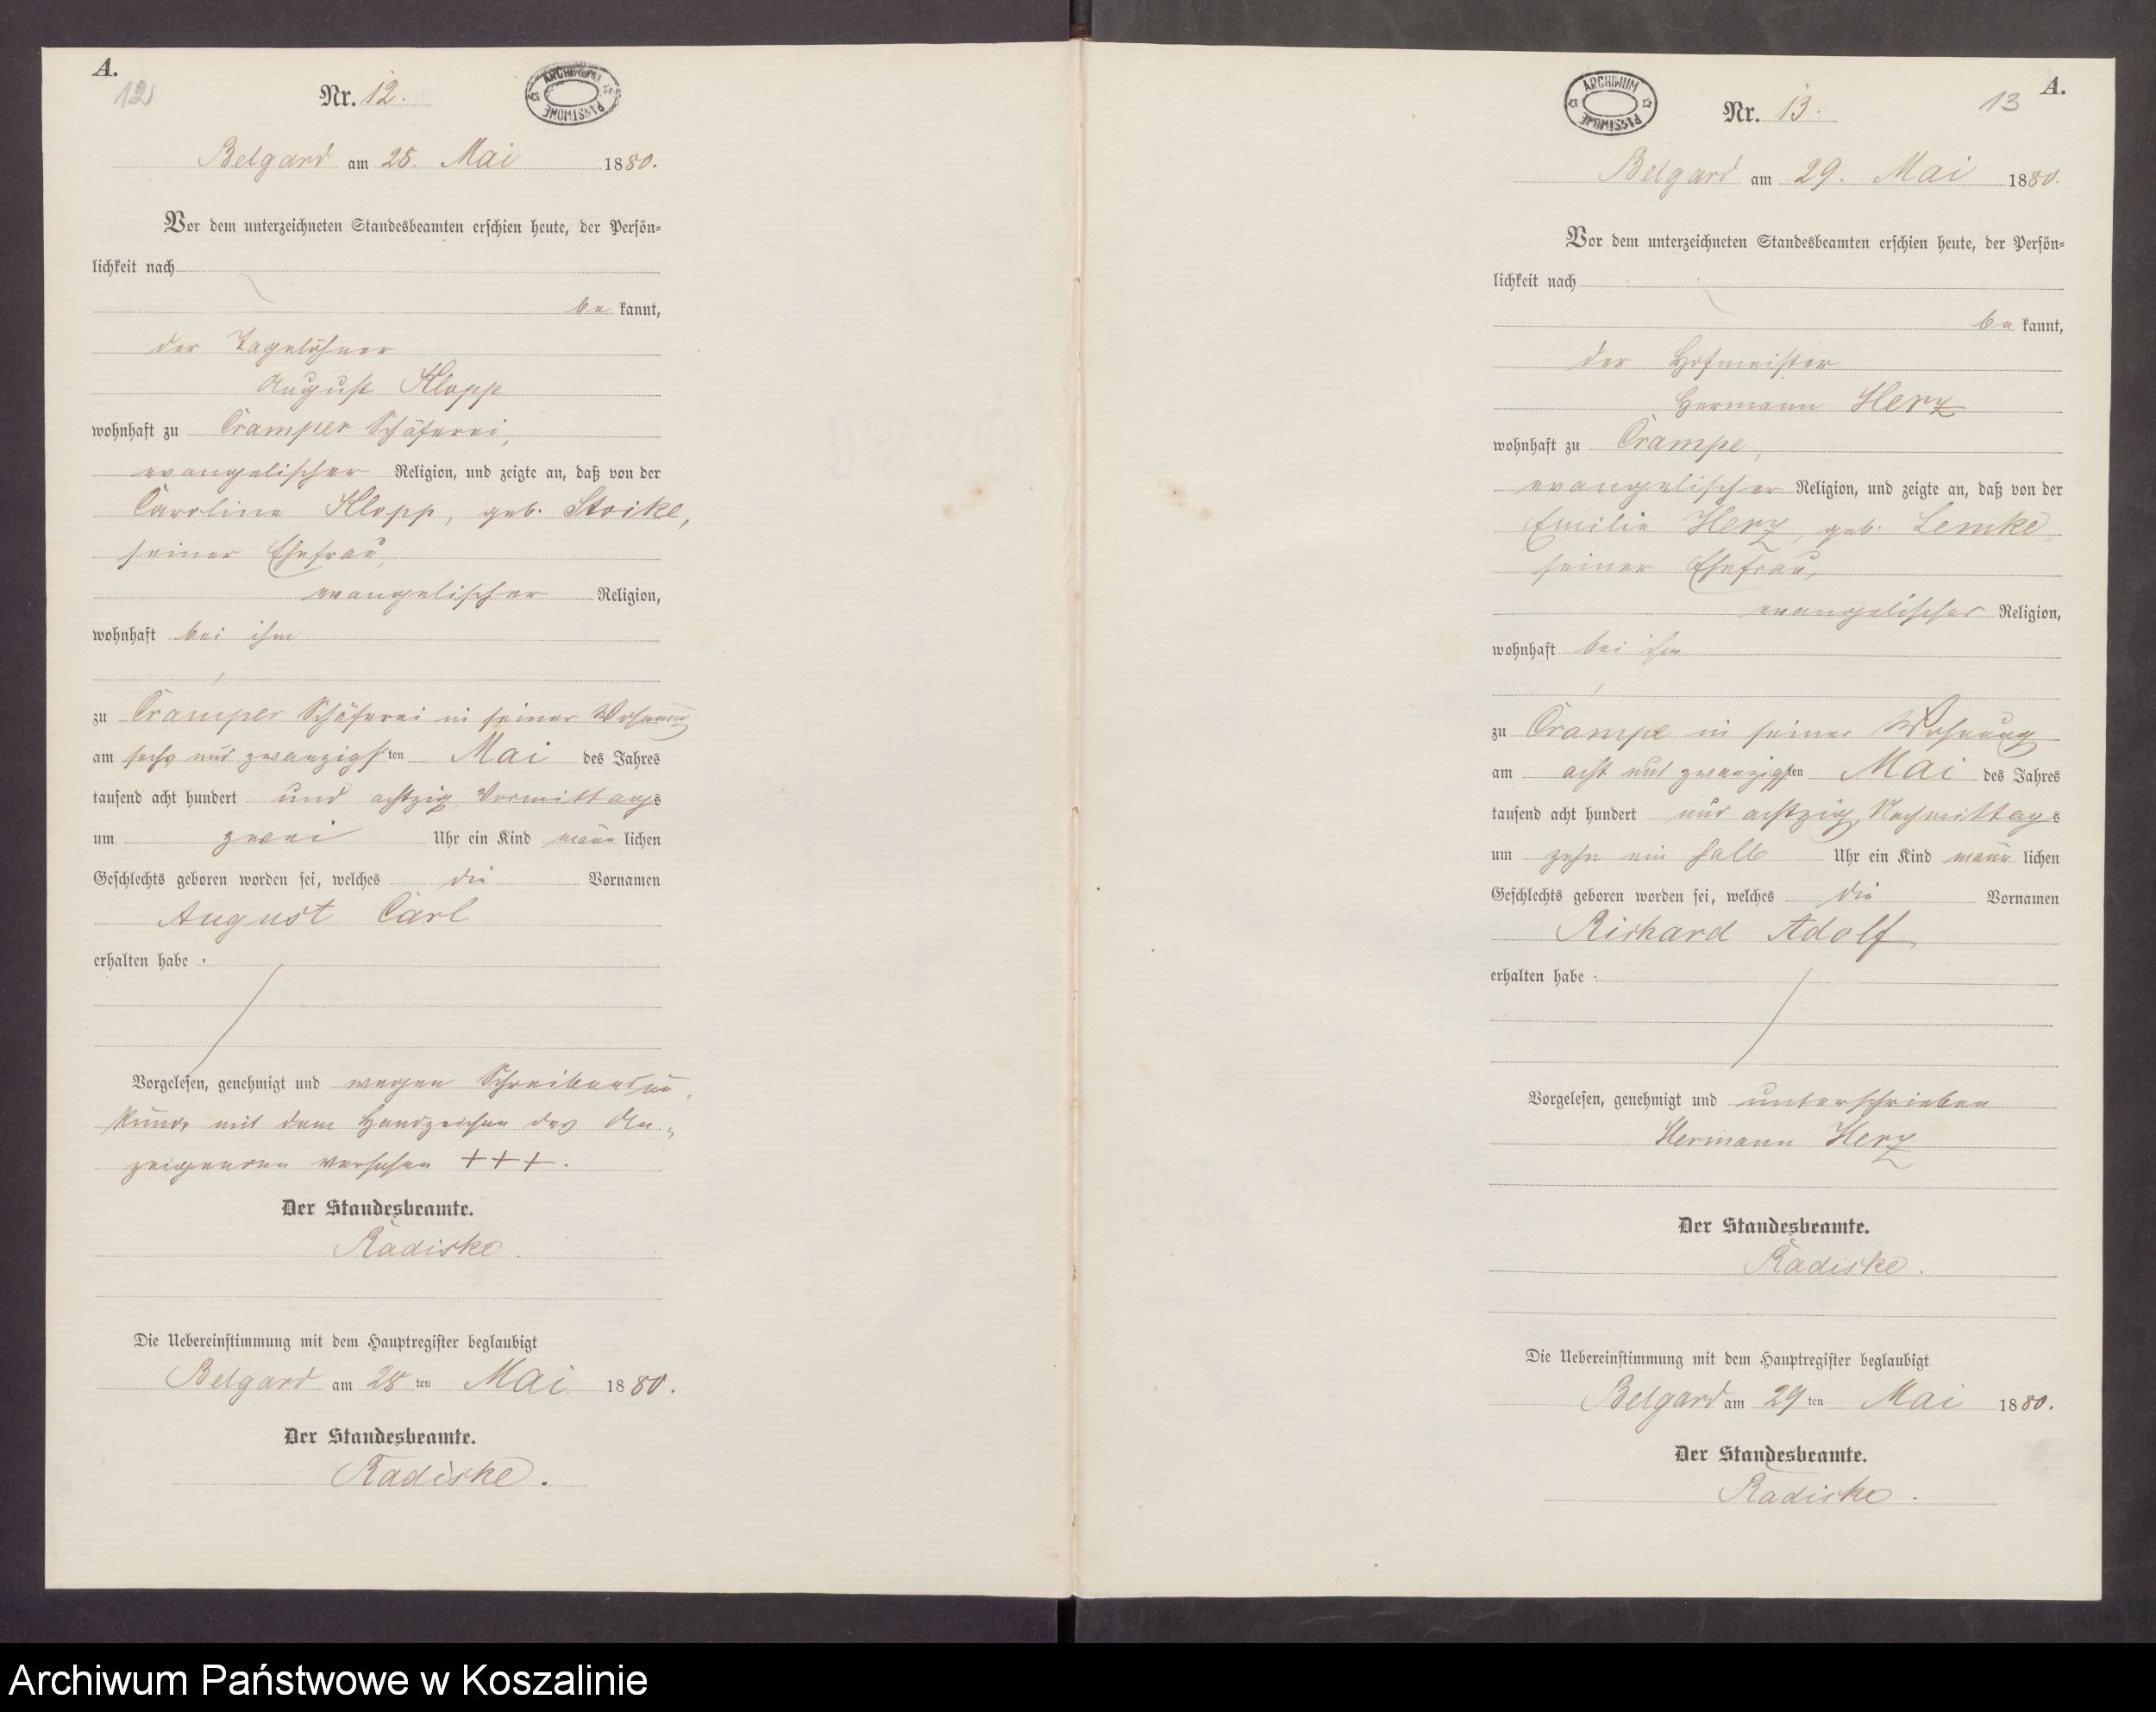 A.
12
Nr. 12.
ARCHIWUM PAŃSTWOWE
Belgard am 28. Mai 1880.
Vor dem unterzeichneten Standesbeamten erschien heute, der Persön-
lichkeit nach
be kannt,
der Tagelöhner
August Klopp
wohnhaft zu Cramper Schäferei,
evangelischer Religion, und zeigte an, daß von der
Caroline Klopp, geb. Stoike,
seiner Ehefrau,
evangelischer Religion,
wohnhaft bei ihm
zu Cramper Schäferei in seiner Wohnung
am sechs und zwanzigsten Mai des Jahres
tausend acht hundert und achtzig Vormittags
um zwei Uhr ein Kind männlichen
Geschlechts geboren worden sei, welches die Vornamen
August Carl
erhalten habe.
Vorgelesen, genehmigt und wegen Schreibensun-
kunde mit dem Handzeichen des An-
zeigenden versehen +++.
Der Standesbeamte.
Radiske.
Die Uebereinstimmung mit dem Hauptregister beglaubigt
Belgard am 28ten Mai 1880.
Der Standesbeamte.
Radiske.
A.
13
Nr. 13.
ARCHIWUM PAŃSTWOWE
Belgard am 29. Mai 1880.
Vor dem unterzeichneten Standesbeamten erschien heute, der Persön-
lichkeit nach
be kannt,
der Hofmeister
Hermann Herz
wohnhaft zu Crampe,
evangelischer Religion, und zeigte an, daß von der
Emilie Herz, geb. Lemke,
seiner Ehefrau,
evangelischer Religion,
wohnhaft bei ihm
zu Crampe in seiner Wohnung
am acht und zwanzigsten Mai des Jahres
tausend acht hundert und achtzig, Nachmittags
um zehn ein halb Uhr ein Kind männlichen
Geschlechts geboren worden sei, welches die Vornamen
Richard Adolf
erhalten habe.
Vorgelesen, genehmigt und unterschrieben
Hermann Herz
Der Standesbeamte.
Radiske.
Die Uebereinstimmung mit dem Hauptregister beglaubigt
Belgard am 29ten Mai 1880.
Der Standesbeamte.
Radiske.
Archiwum Państwowe w Koszalinie